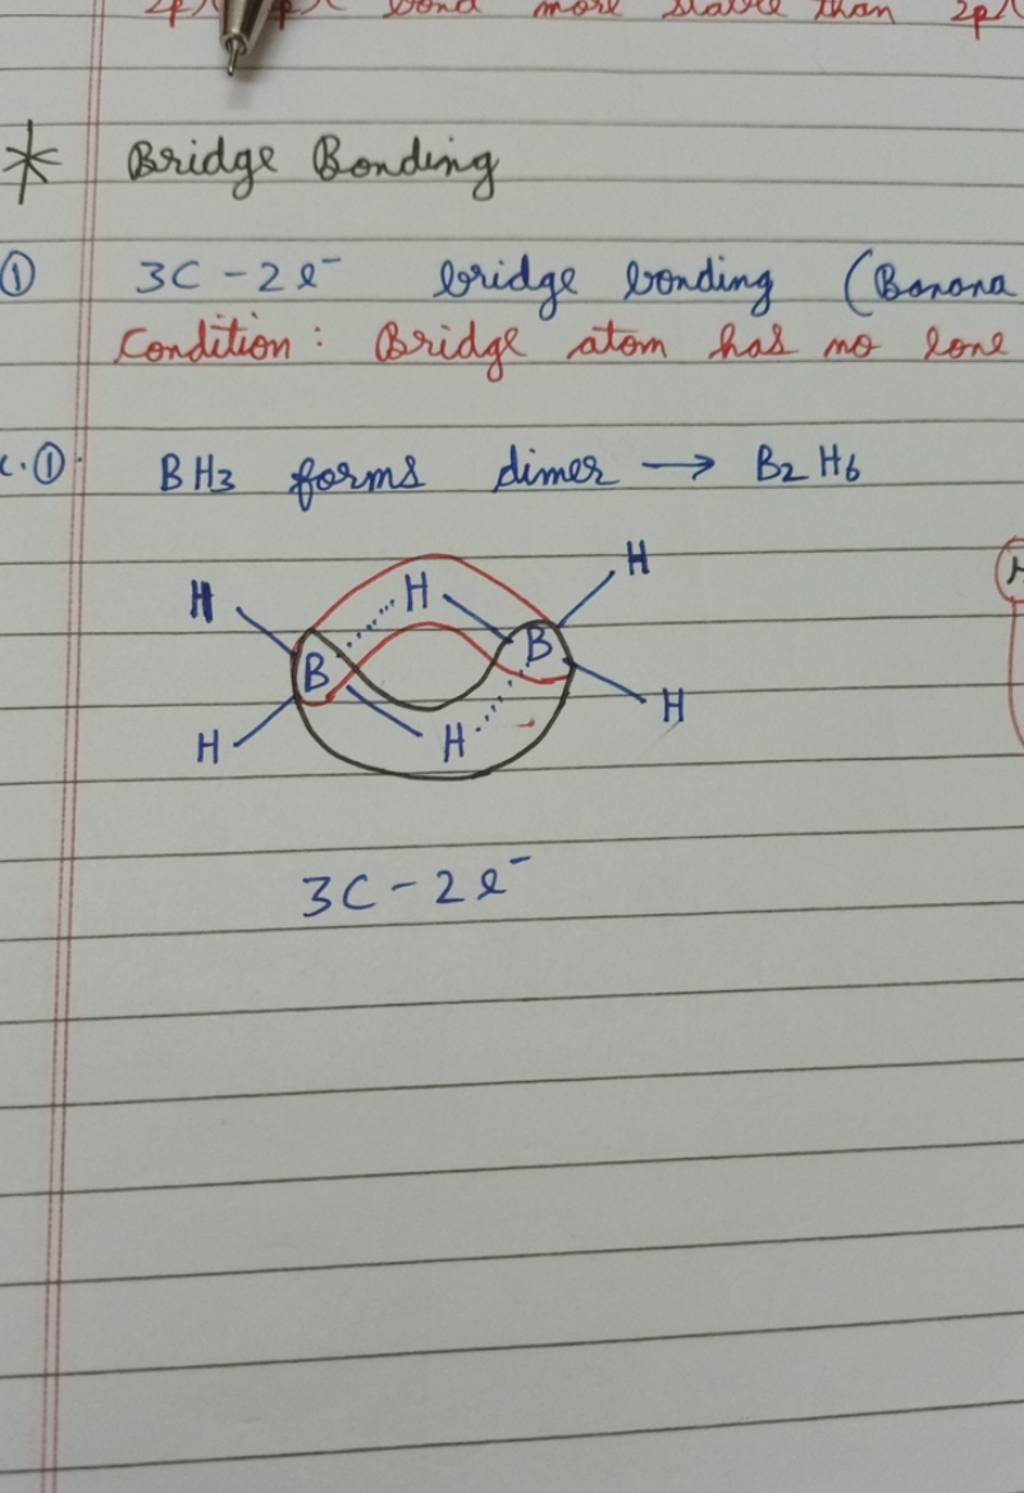 bond more stable than 2p
* Bridge Bonding
① 3C-2e⁻ bridge bonding (Banana
Condition: Bridge atom has no lone
①. BH3 forms dimer → B2H6
H H H
B B
H H H
3C-2e⁻